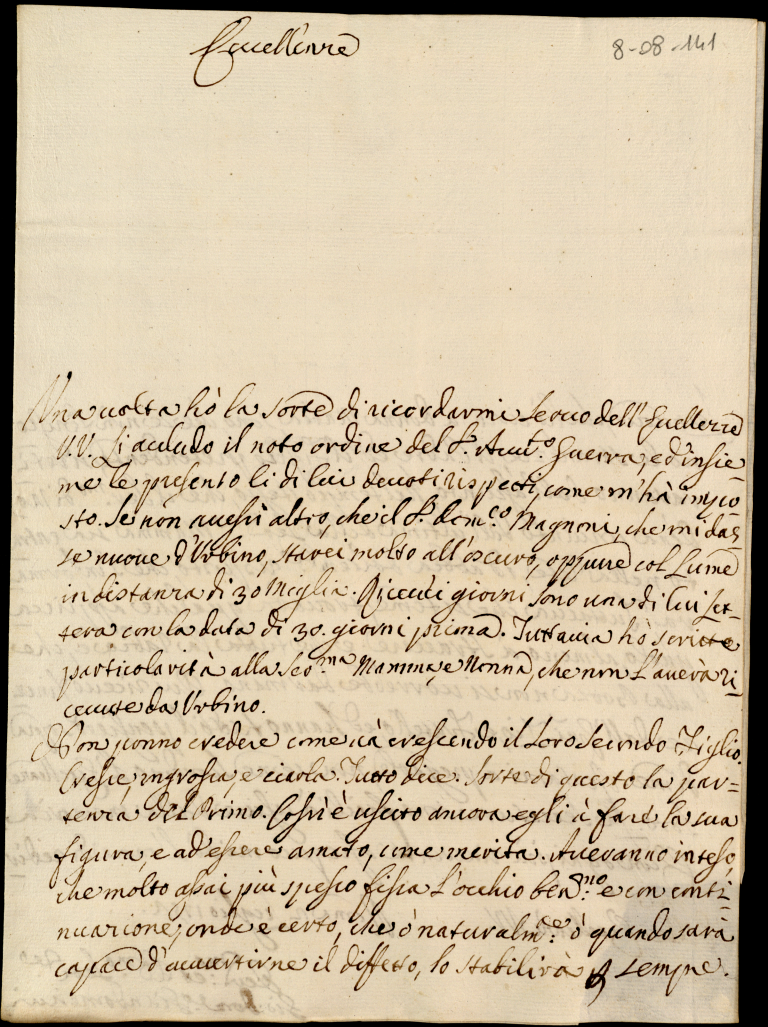 Eccellenze
8-08-141
Una uolta hò la sorte di ricordarmi seruo dell'Eccellenze
V.V. Li accludo il noto ordine del S.r Guerra, ed insie-
me le presento li di lui deuoti rispetti, come m'hà impo-
sto. Se non auessi altro, che il S.r Dom.co Magnoni, che mi das-
se nuoue d'Vrbino, starei molto all'oscuro, oppure col Lume
in distanza di 30 Miglia. Riceuei giorni sono una di lui Let-
tera con la data di 30. giorni prima. Tuttauia hò scritte
particolarità alla Mamma, e Nonna, che non l'auerà ri-
ceuute da Vrbino.
Non ponno credere come uà crescendo il loro secondo Figlio.
Cresce, ingrossa, e ciarla. Tutto dice. Sorte di questo la par=
tenza del Primo. Cosrì è uscito ancora egli à fare la sua
figura, e ad essere amato, come merita. Aueranno inteso,
che molto assai più spesso fissa l'occhio e con conti-
nuazione, onde è certo, che ò naturalm.te ò quando sarà
capace d'auuertirne il diffetto, lo stabilirà p sempre.